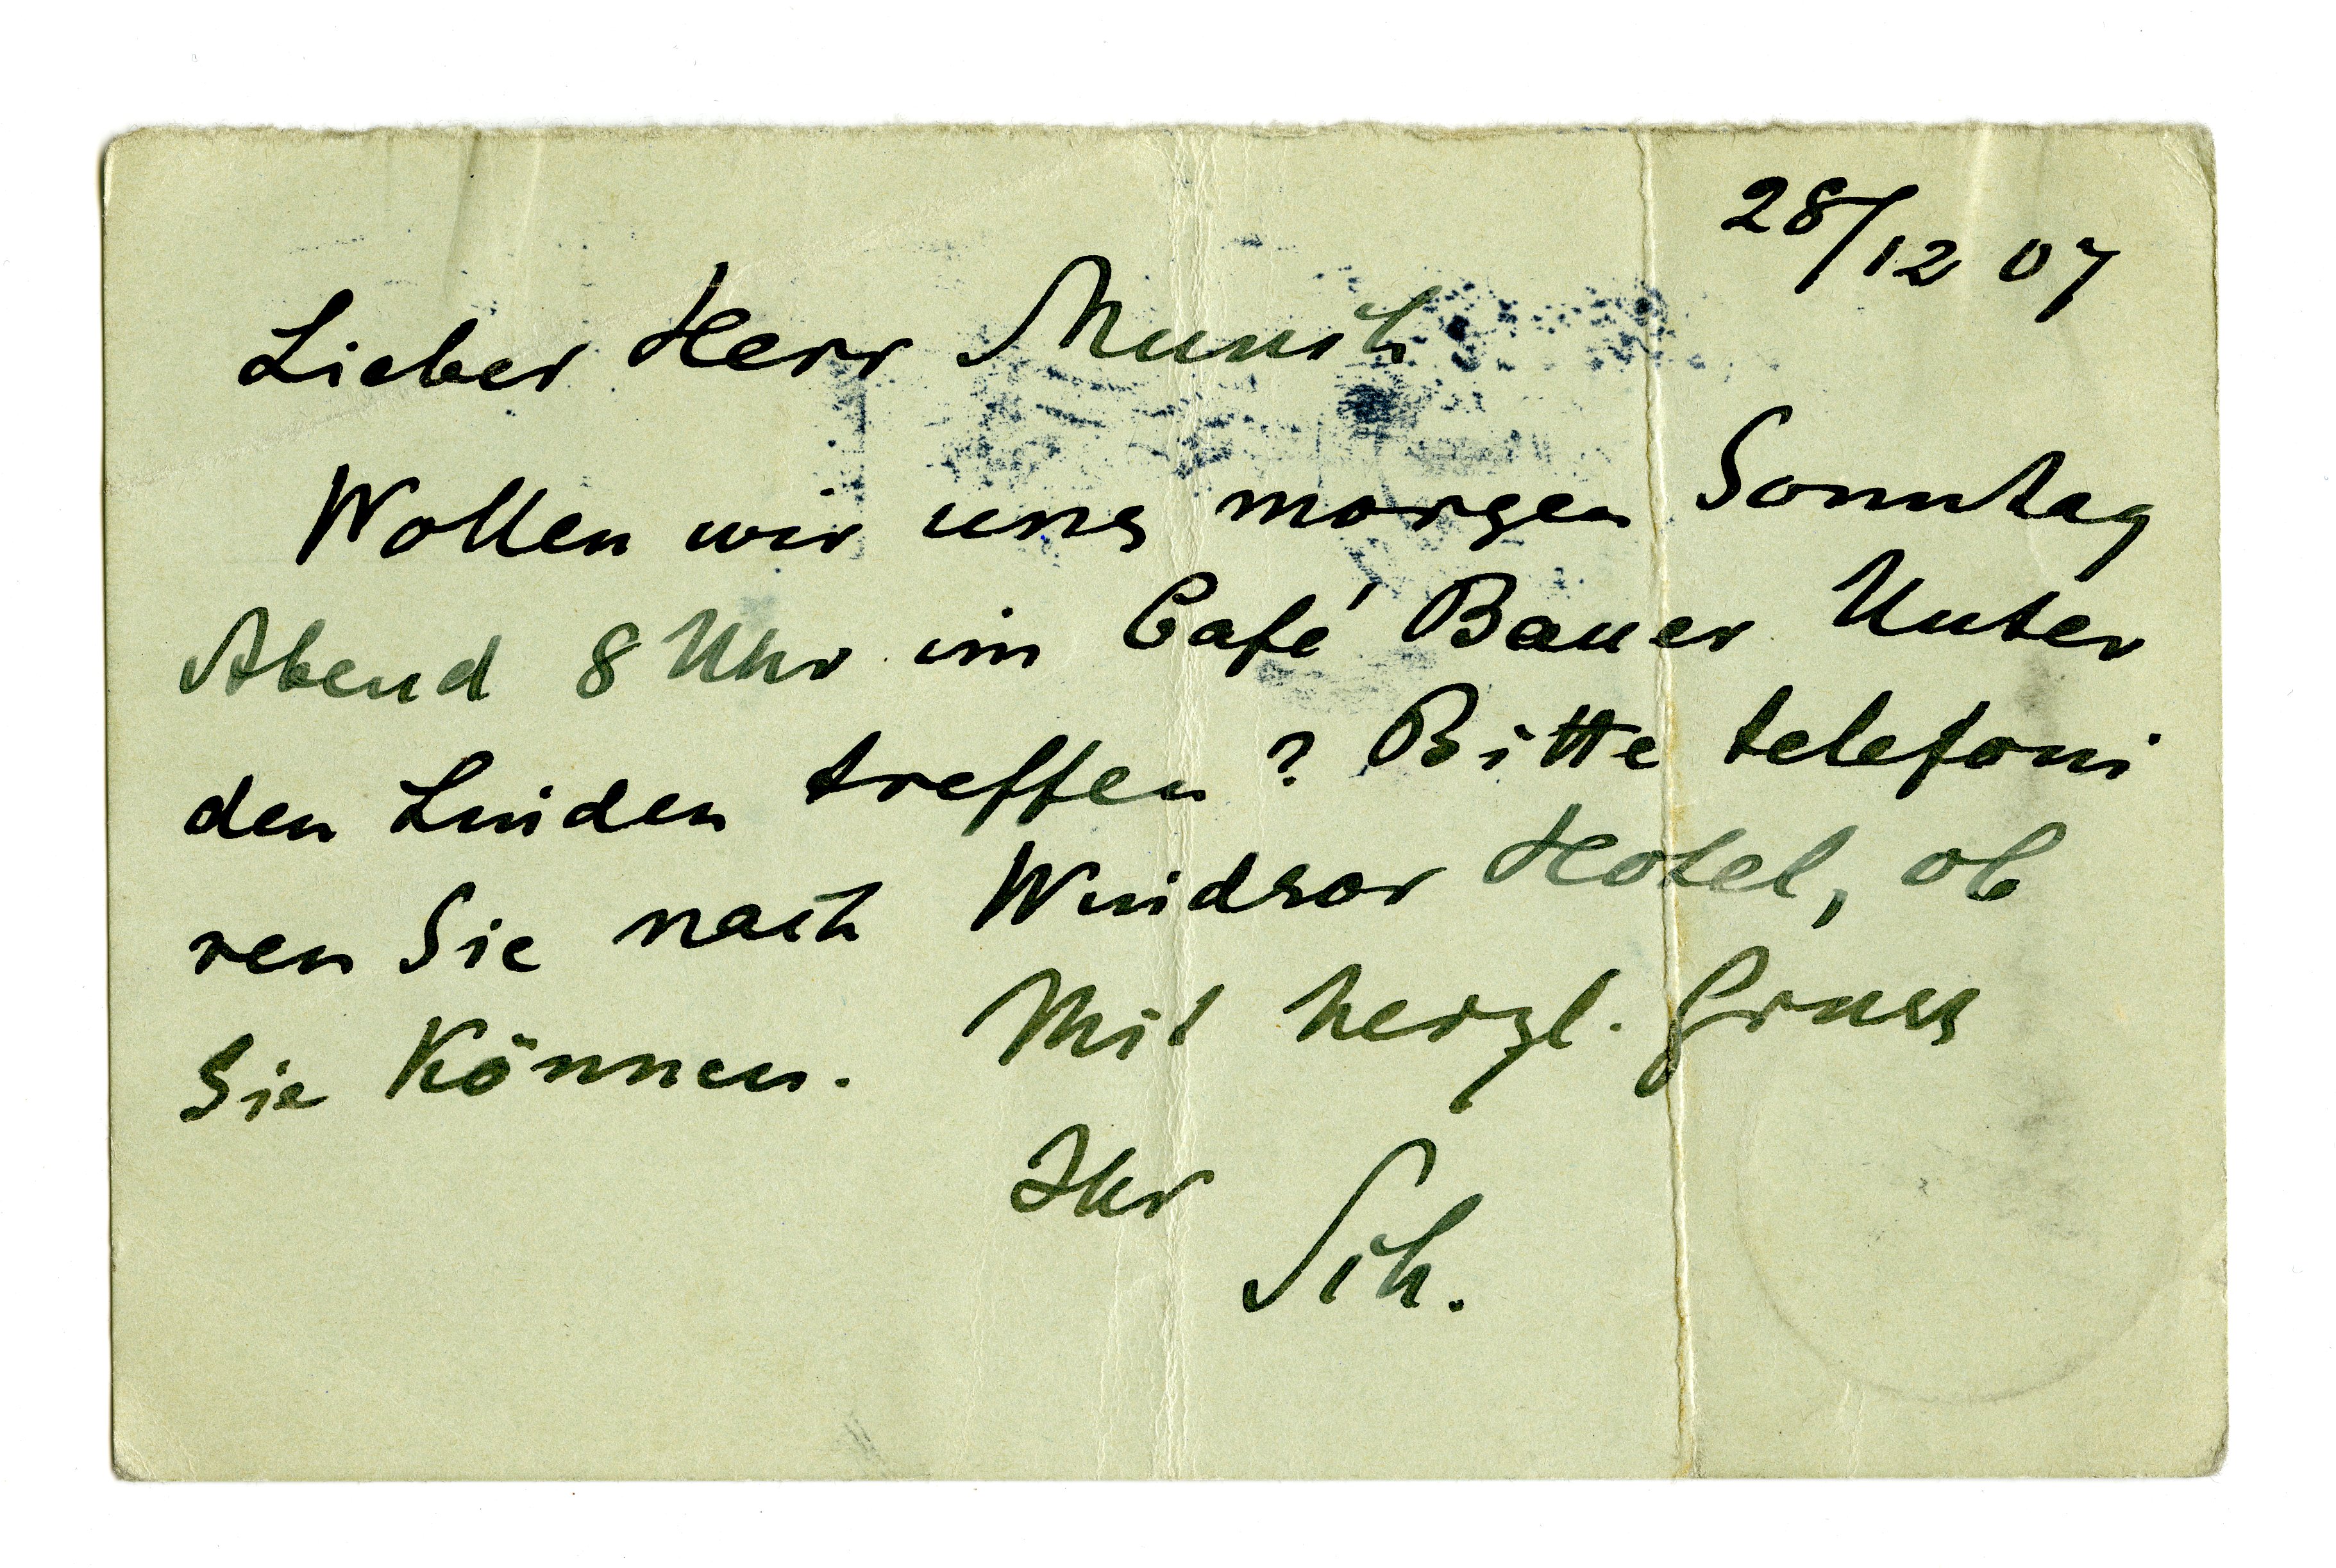 28/12 07
Lieber Herr Munch
Wollen wir uns morgen Sonntag
Abend 8 Uhr im Café Bauer Unter
den Linden treffen? Bitte telefoni
ren Sie nach Windsor Hotel, ob
Sie können. Mit herzl. Gruss
Ihr Sch.